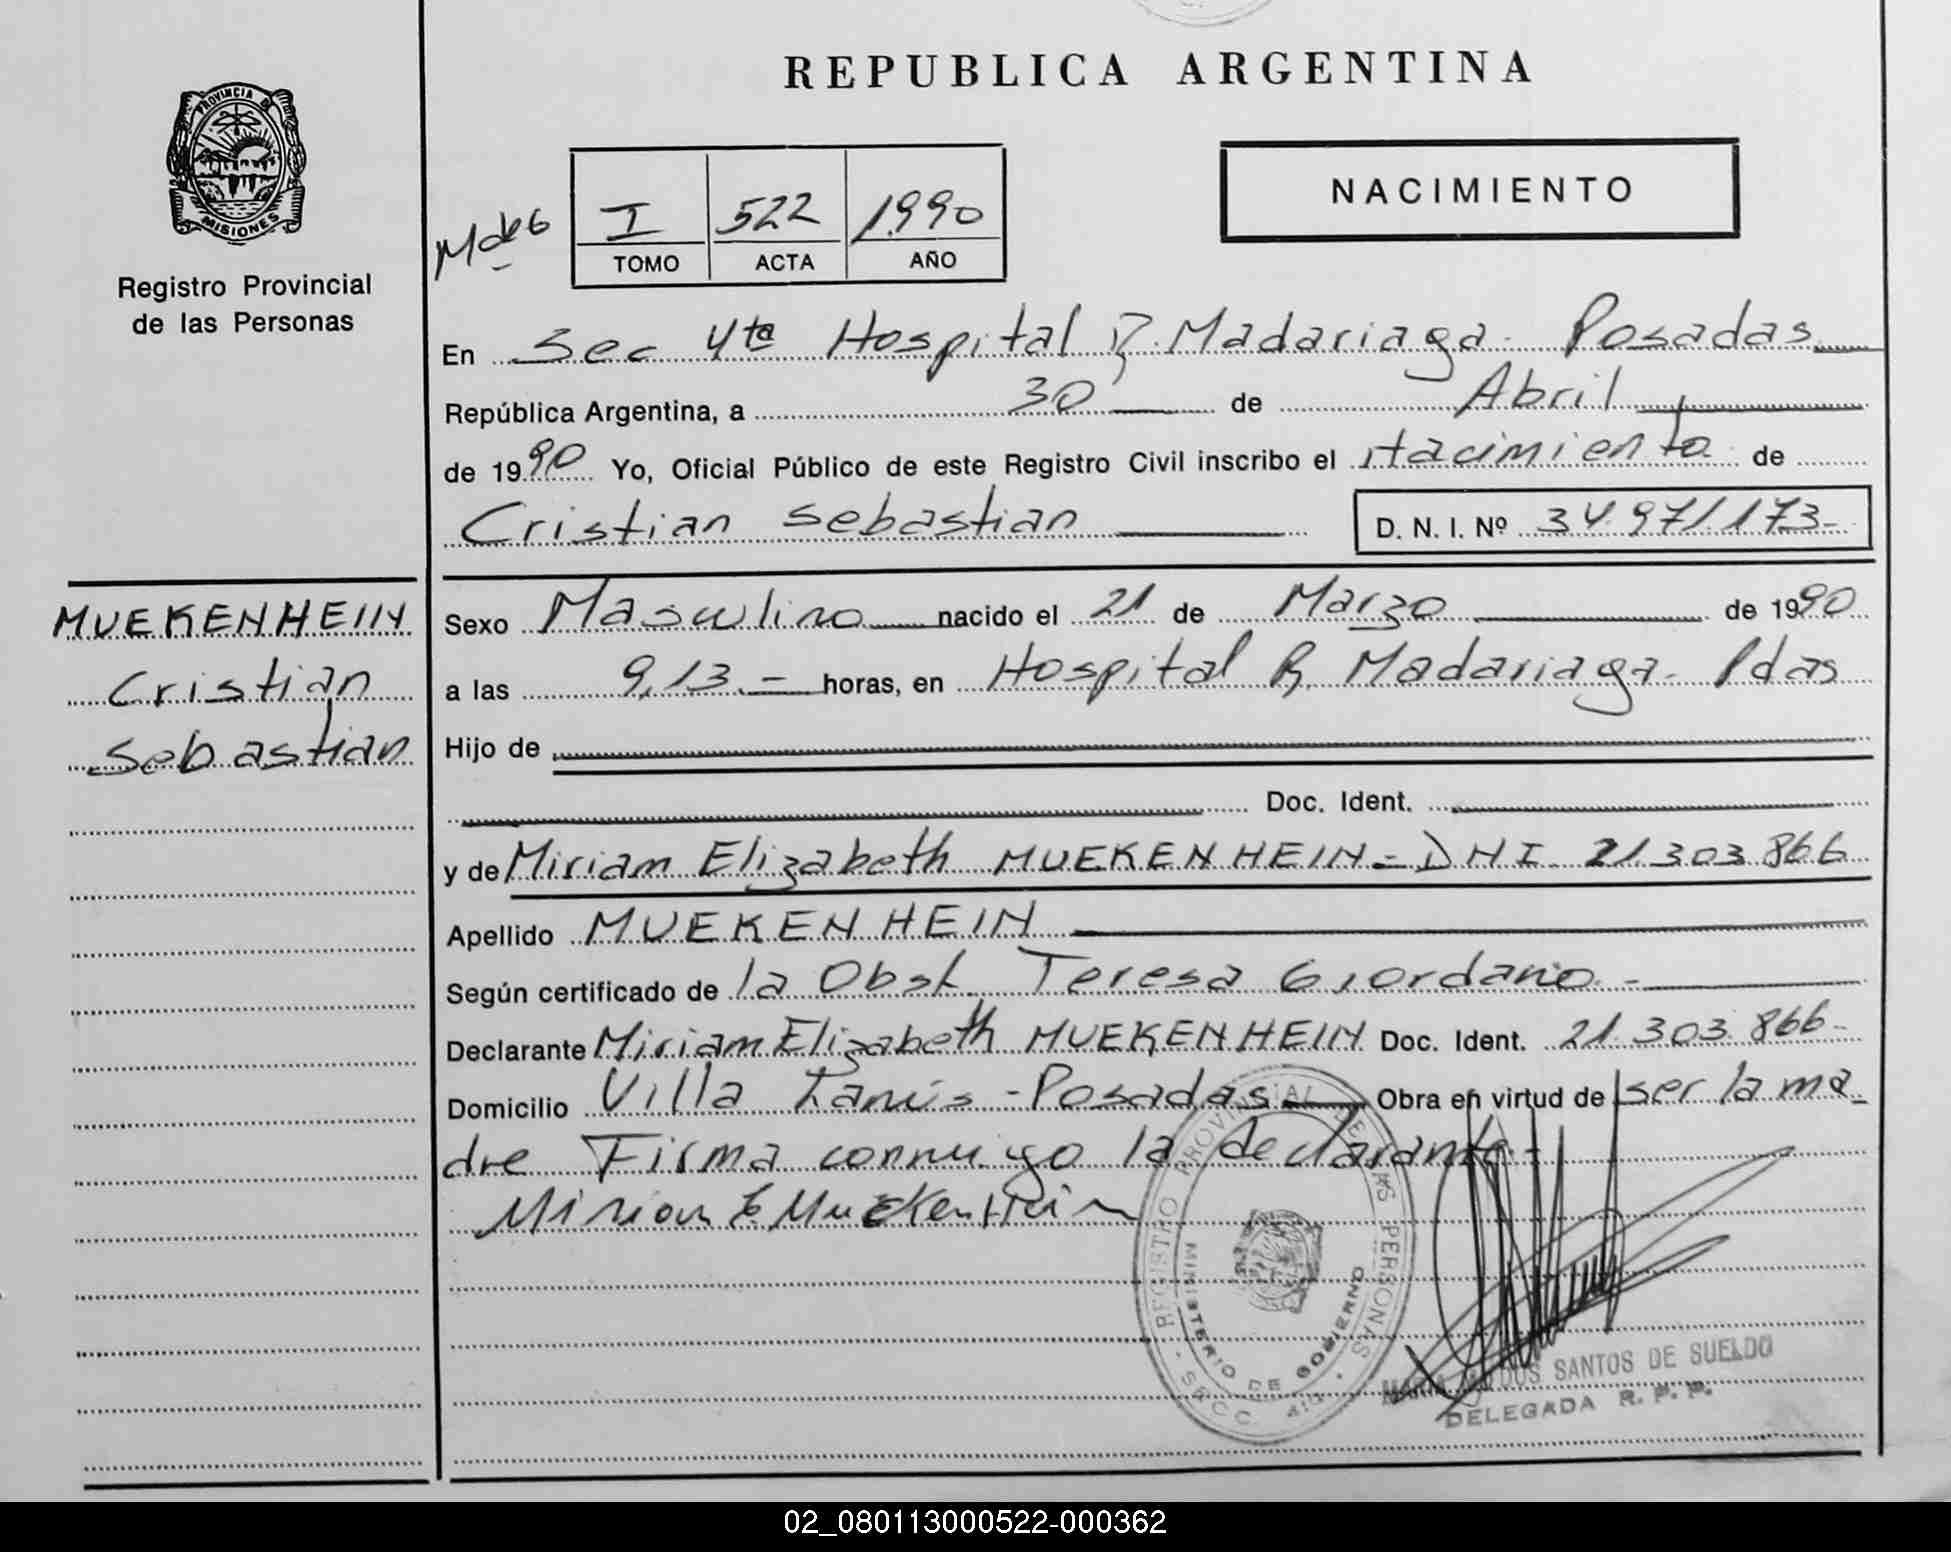 REPUBLICA ARGENTINA
PROVINCIA DE
MISIONES
Registro Provincial
de las Personas
I 522 1990
TOMO ACTA AÑO
NACIMIENTO
En Sec 4ta Hospital R. Madariaga - Posadas
República Argentina, a 30 de Abril
de 1990 Yo, Oficial Público de este Registro Civil inscribo el Nacimiento de
Cristian Sebastian D. N. I. Nº 34.971.173-
MUEKENHEIN
Cristian
Sebastian
Sexo Masculino nacido el 21 de Marzo de 1990
a las 9,13.- horas, en Hospital R. Madariaga - Pdas
Hijo de
Doc. Ident.
y de Miriam Elizabeth MUEKENHEIN - DNI 21.303.866
Apellido MUEKENHEIN
Según certificado de la Obst. Teresa Giordano.-
Declarante Miriam Elizabeth MUEKENHEIN Doc. Ident. 21.303.866-
Domicilio Villa Lanús - Posadas Obra en virtud de ser la ma
dre Firma conmigo la declarante-
Miriam E. MuEKenHein
REGISTRO PROVINCIAL DE LAS PERSONAS
MINISTERIO DE GOBIERNO
SECC. 4a.
DOS SANTOS DE SUELDO
DELEGADA R. P. P.
02_080113000522-000362